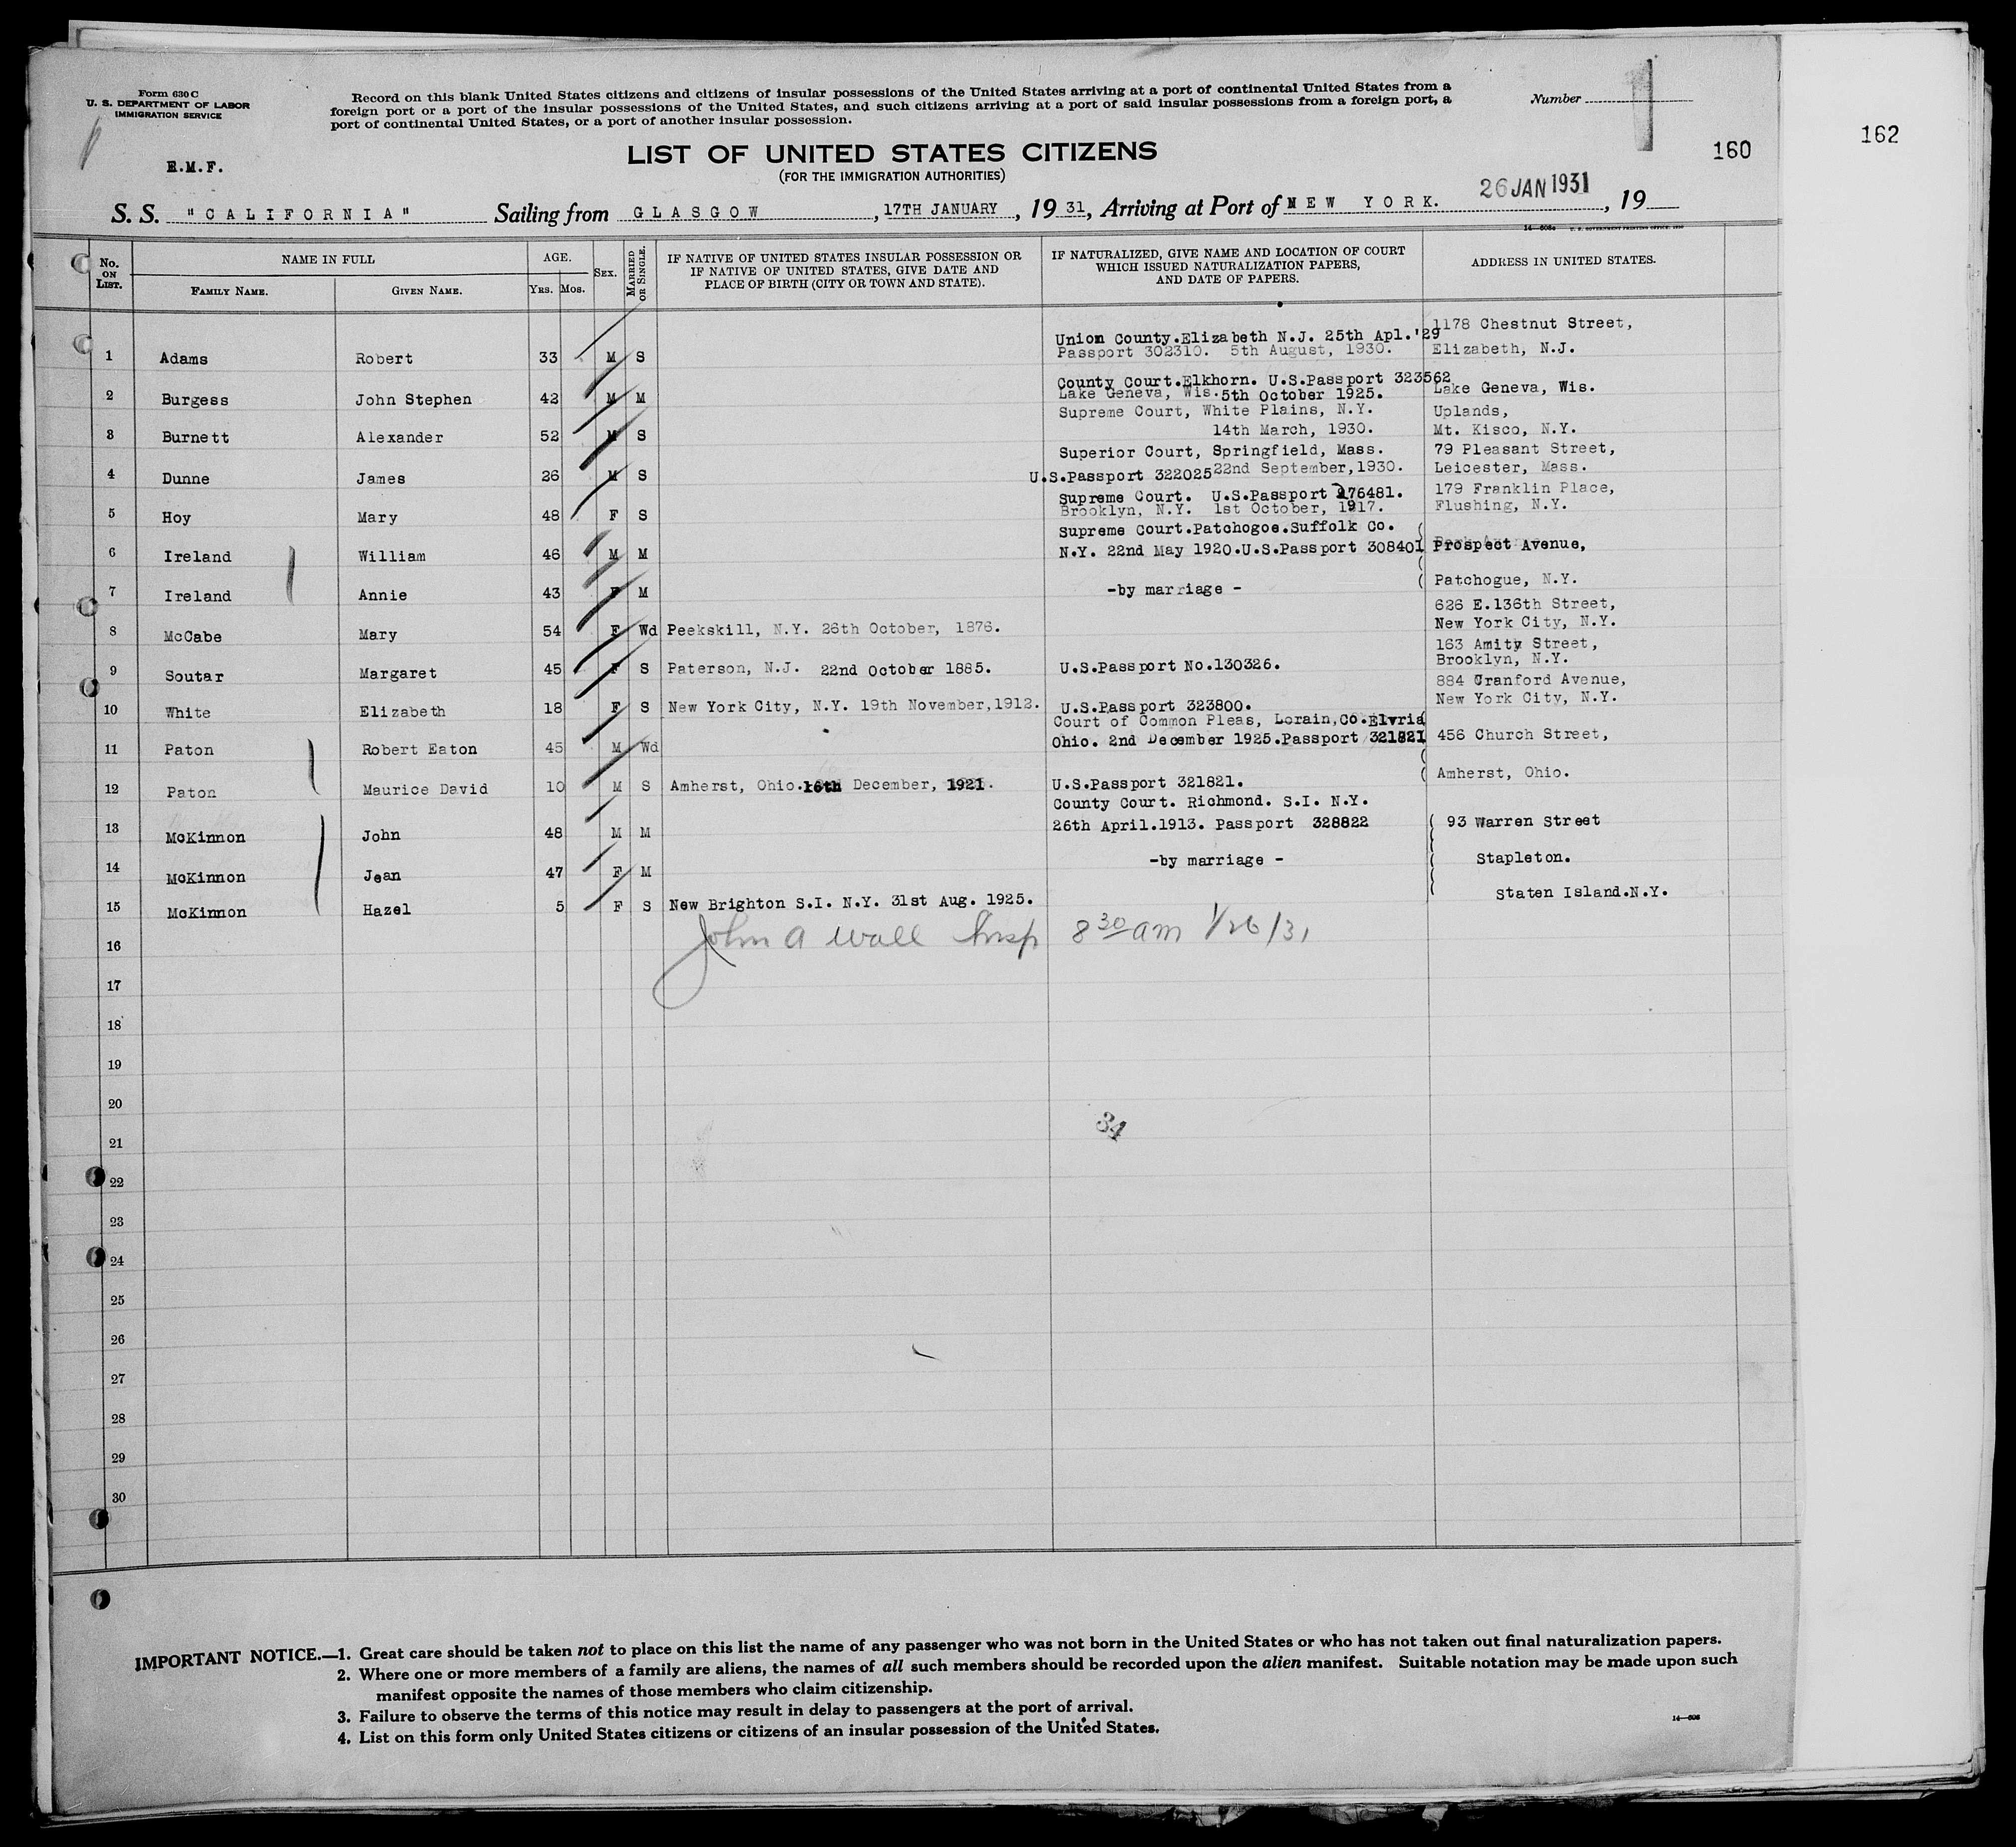 Form 630 C
U. S. DEPARTMENT OF LABOR
IMMIGRATION SERVICE
Record on this blank United States citizens and citizens of insular possessions of the United States arriving at a port of continental United States from a
foreign port or a port of the insular possessions of the United States, and such citizens arriving at a port of said insular possessions from a foreign port, a
port of continental United States, or a port of another insular possession.
Number
160
162
E.M.F.
LIST OF UNITED STATES CITIZENS
(FOR THE IMMIGRATION AUTHORITIES)
S. S. "CALIFORNIA" Sailing from GLASGOW, 17TH JANUARY, 19 31, Arriving at Port of NEW YORK. 26 JAN 1931, 19
No. ON LIST. NAME IN FULL AGE. SEX. MARRIED OR SINGLE. IF NATIVE OF UNITED STATES INSULAR POSSESSION OR IF NATIVE OF UNITED STATES, GIVE DATE AND PLACE OF BIRTH (CITY OR TOWN AND STATE). IF NATURALIZED, GIVE NAME AND LOCATION OF COURT WHICH ISSUED NATURALIZATION PAPERS, AND DATE OF PAPERS. ADDRESS IN UNITED STATES.
FAMILY NAME. GIVEN NAME. YRS. MOS.
Union County.Elizabeth N.J. 25th Apl.'29 1178 Chestnut Street,
1 Adams Robert 33 M S Passport 302310. 5th August, 1930. Elizabeth, N.J.
County Court.Elkhorn. U.S.Passport 323562
2 Burgess John Stephen 42 M M Lake Geneva, Wis. 5th October 1925. Lake Geneva, Wis.
Supreme Court, White Plains, N.Y. Uplands,
3 Burnett Alexander 52 M S 14th March, 1930. Mt. Kisco, N.Y.
Superior Court, Springfield, Mass. 79 Pleasant Street,
4 Dunne James 26 M S U.S.Passport 322025 22nd September,1930. Leicester, Mass.
Supreme Court. U.S.Passport 276481. 179 Franklin Place,
5 Hoy Mary 48 F S Brooklyn, N.Y. 1st October, 1917. Flushing, N.Y.
Supreme Court.Patchogoe.Suffolk Co.
6 Ireland William 46 M M N.Y. 22nd May 1920.U.S.Passport 308401 Prospect Avenue,
7 Ireland Annie 43 F M -by marriage - Patchogue, N.Y.
626 E.136th Street,
8 McCabe Mary 54 F Wd Peekskill, N.Y. 26th October, 1876. New York City, N.Y.
163 Amity Street,
9 Soutar Margaret 45 F S Paterson, N.J. 22nd October 1885. U.S.Passport No.130326. Brooklyn, N.Y.
884 Cranford Avenue,
10 White Elizabeth 18 F S New York City, N.Y. 19th November,1912. U.S.Passport 323800. New York City, N.Y.
Court of Common Pleas, Lorain,Co.Elyria
11 Paton Robert Eaton 45 M Wd Ohio. 2nd December 1925.Passport 321821 456 Church Street,
12 Paton Maurice David 10 M S Amherst, Ohio.16th December, 1921. U.S.Passport 321821. Amherst, Ohio.
County Court. Richmond. S.I. N.Y.
13 McKinnon John 48 M M 26th April.1913. Passport 328822 93 Warren Street
14 McKinnon Jean 47 F M -by marriage - Stapleton.
15 McKinnon Hazel 5 F S New Brighton S.I. N.Y. 31st Aug. 1925. Staten Island.N.Y.
16 John A Wall Insp 8 30 am 1/26/31
17
18
19
20
34
21
22
23
24
25
26
27
28
29
30
IMPORTANT NOTICE.—1. Great care should be taken not to place on this list the name of any passenger who was not born in the United States or who has not taken out final naturalization papers.
2. Where one or more members of a family are aliens, the names of all such members should be recorded upon the alien manifest. Suitable notation may be made upon such
manifest opposite the names of those members who claim citizenship.
3. Failure to observe the terms of this notice may result in delay to passengers at the port of arrival.
4. List on this form only United States citizens or citizens of an insular possession of the United States.